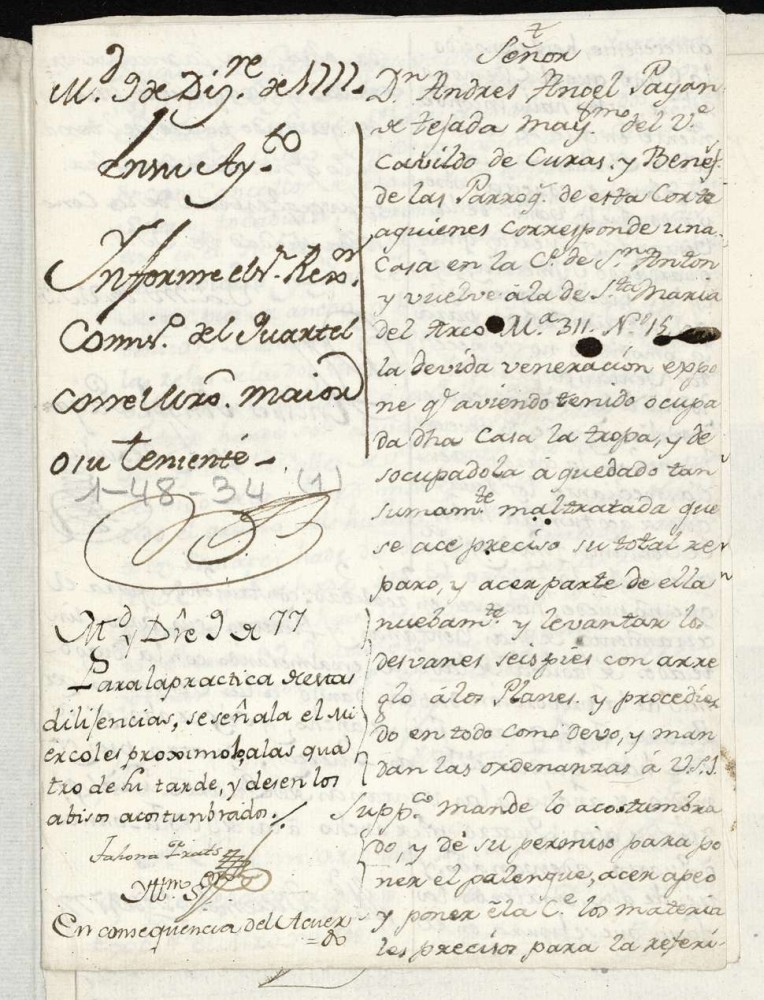 M.d 9 de Diz.re de 1777.
En su Ay.to
Informe el S.r Rex.or
Comis.o del Quartel
con el Mro. maior
o su teniente.
1-48-34 (1)
M.d y Dre 9 de 77
Para la practica de estas
dilijencias, se señala el Mi
ercoles proximo, a las qua
tro de su tarde, y desen los
abisos acostunbrados.
Yllmo. S.or
En consequencia del Acuer
=do
Señor
D.n Andres Angel Payan
de tejada may.mo del V.e
Cavildo de Curas. y Benef.
de las Parroq. de esta Corte
a quienes corresponde una
Casa en la C.e de S.n Anton
y vuelve á la de S.ta Maria
del Arco M.a 311. N.o 15
la devida veneración expo
ne q.e aviendo tenido ocupa
da dha Casa la tropa, y de
socupadola á quedado tan
sumam.te maltratada que
se ace preciso su total re
paro, y acer parte de ella
nuebam.te y levantar los
desvanes seis pies con arre
glo á los Planes. y procedien
do en todo como devo, y man
dan las ordenanzas á V.S.I.
Supp.co mande lo acostumbra
do, y dé su permiso para po
ner el palenque, acer apeo
y poner en la C.e los materia
les precisos para la referi-